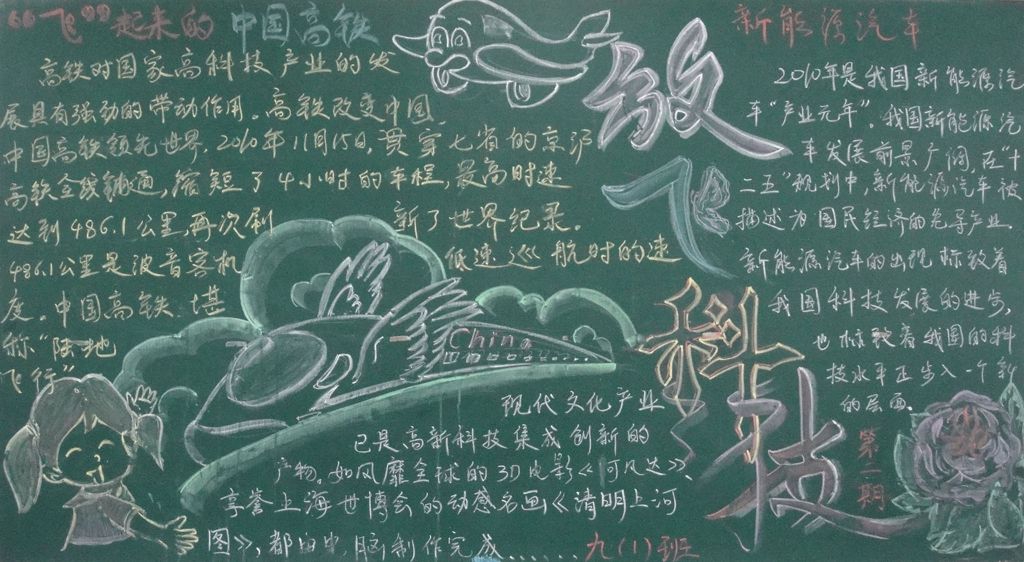 “飞”起来的中国高铁
高铁对国家高科技产业的发
展具有强劲的带动作用。高铁改变中国。
中国高铁领先世界。2010年11月15日,贯穿七省的京沪
高铁全线铺通,缩短了4小时的车程,最高时速
达到486.1公里,再次刷新了世界纪录。
486.1公里是波音客机低速巡航时的速
度。中国高铁堪
称“陆地
飞行”
放
飞
科
技
China
新能源汽车
2010年是我国新能源汽
车“产业元年”。我国新能源汽
车发展前景广阔,在“十
二五”规划中,新能源汽车被
描述为国民经济的先导产业。
新能源汽车的出现标致着
我国科技发展的进步,
也标致着我国的科
技水平正步入一个新
的层面。
第二期
现代文化产业
已是高新科技集成创新的
产物。如风靡全球的3D电影《阿凡达》、
享誉上海世博会的动感名画《清明上河
图》,都由电脑制作完成......
九(1)班